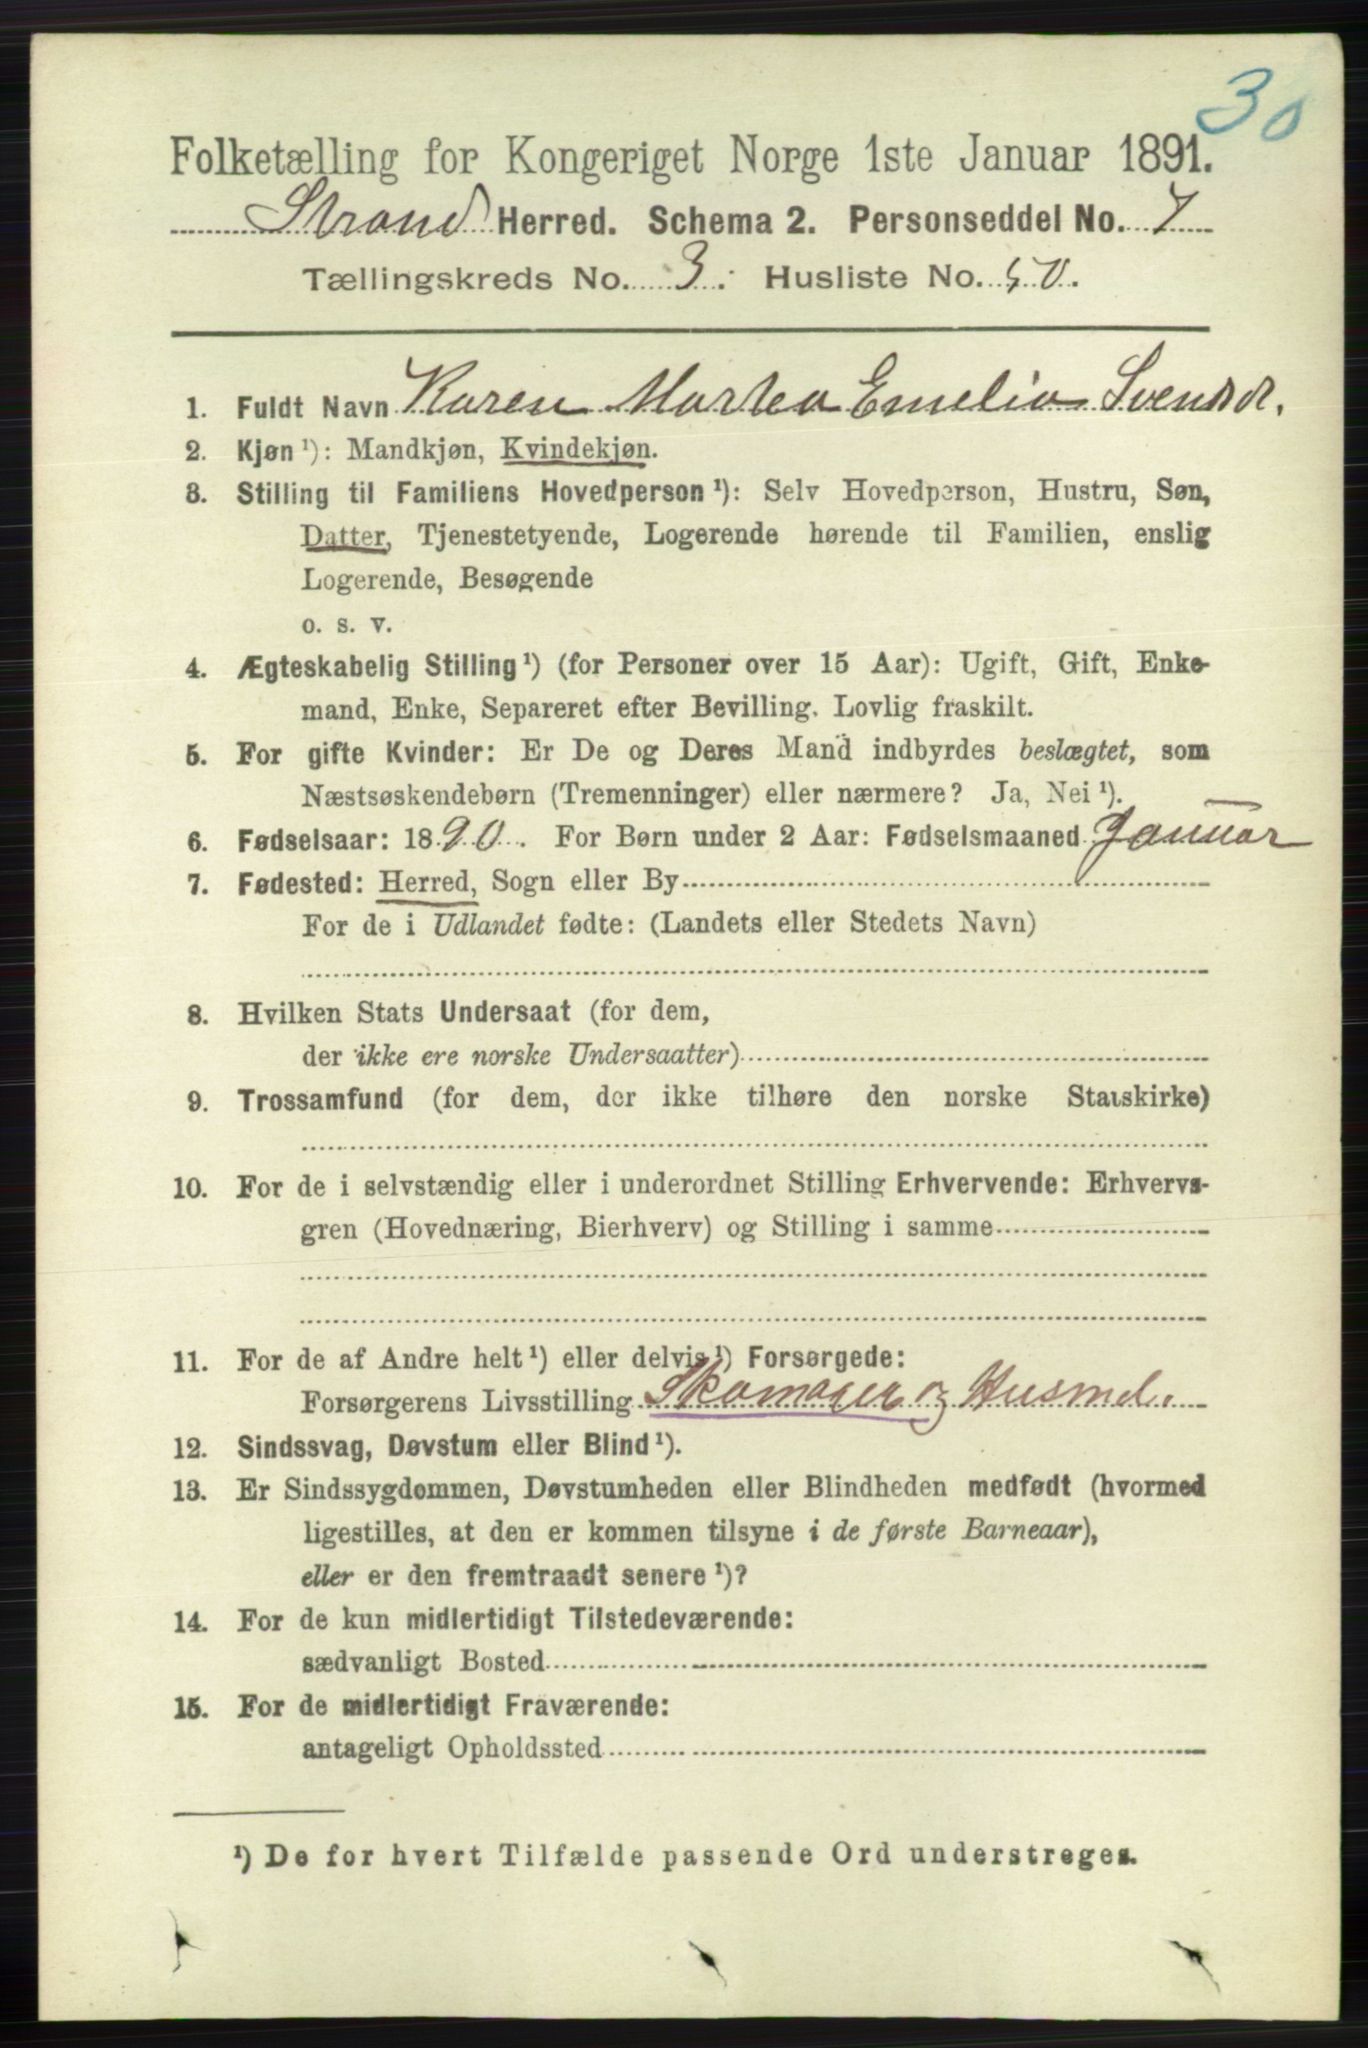 30
Folketælling for Kongeriget Norge 1ste Januar 1891.
Strand Herred. Schema 2. Personseddel No. 7
Tællingskreds No. 3. Husliste No. 50.
1. Fuldt Navn Karen Martea Emelia Svendsd.
2. Kjøn ¹): Mandkjøn, Kvindekjøn.
3. Stilling til Familiens Hovedperson ¹): Selv Hovedperson, Hustru, Søn,
Datter, Tjenestetyende, Logerende hørende til Familien, enslig
Logerende, Besøgende
o. s. v.
4. Ægteskabelig Stilling ¹) (for Personer over 15 Aar): Ugift, Gift, Enke-
mand, Enke, Separeret efter Bevilling. Lovlig fraskilt.
5. For gifte Kvinder: Er De og Deres Mand indbyrdes beslægtet, som
Næstsøskendebørn (Tremenninger) eller nærmere? Ja, Nei ¹).
6. Fødselsaar: 1890. For Børn under 2 Aar: Fødselsmaaned Januar
7. Fødested: Herred, Sogn eller By
For de i Udlandet fødte: (Landets eller Stedets Navn)
8. Hvilken Stats Undersaat (for dem,
der ikke ere norske Undersaatter)
9. Trossamfund (for dem, der ikke tilhøre den norske Statskirke)
10. For de i selvstændig eller i underordnet Stilling Erhvervende: Erhvervs-
gren (Hovednæring, Bierhverv) og Stilling i samme
11. For de af Andre helt ¹) eller delvis ¹) Forsørgede:
Forsørgerens Livsstilling Skomager og Husmd.
12. Sindssvag, Døvstum eller Blind ¹).
13. Er Sindssygdommen, Døvstumheden eller Blindheden medfødt (hvormed
ligestilles, at den er kommen tilsyne i de første Barneaar),
eller er den fremtraadt senere ¹)?
14. For de kun midlertidigt Tilstedeværende:
sædvanligt Bosted
15. For de midlertidigt Fraværende:
antageligt Opholdssted
¹) De for hvert Tilfælde passende Ord understreges.